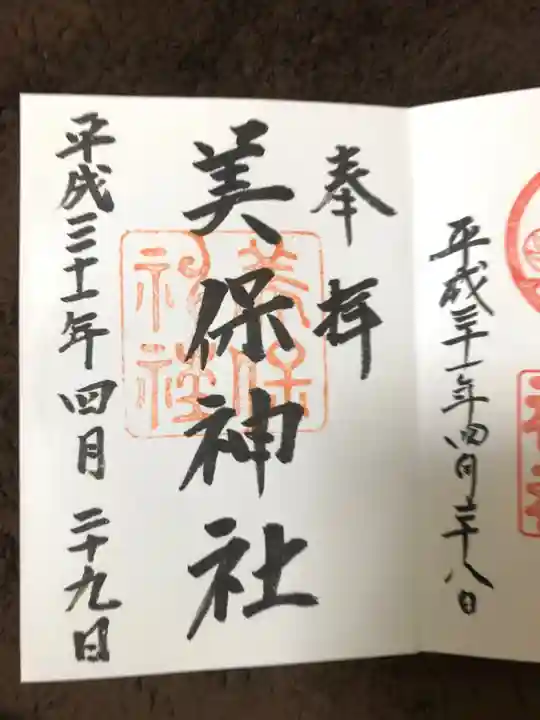 平成三十一年四月二十八日
奉拝
美保神社
美保
神社
平成三十一年四月二十九日